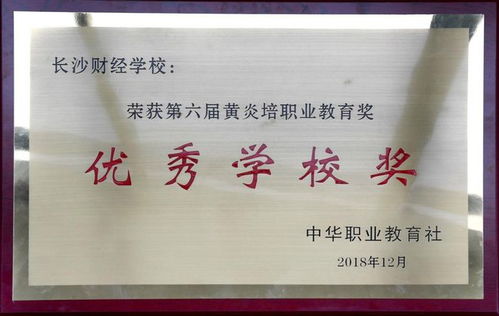 长沙财经学校：
荣获第六届黄炎培职业教育奖
优秀学校奖
中华职业教育社
2018年12月